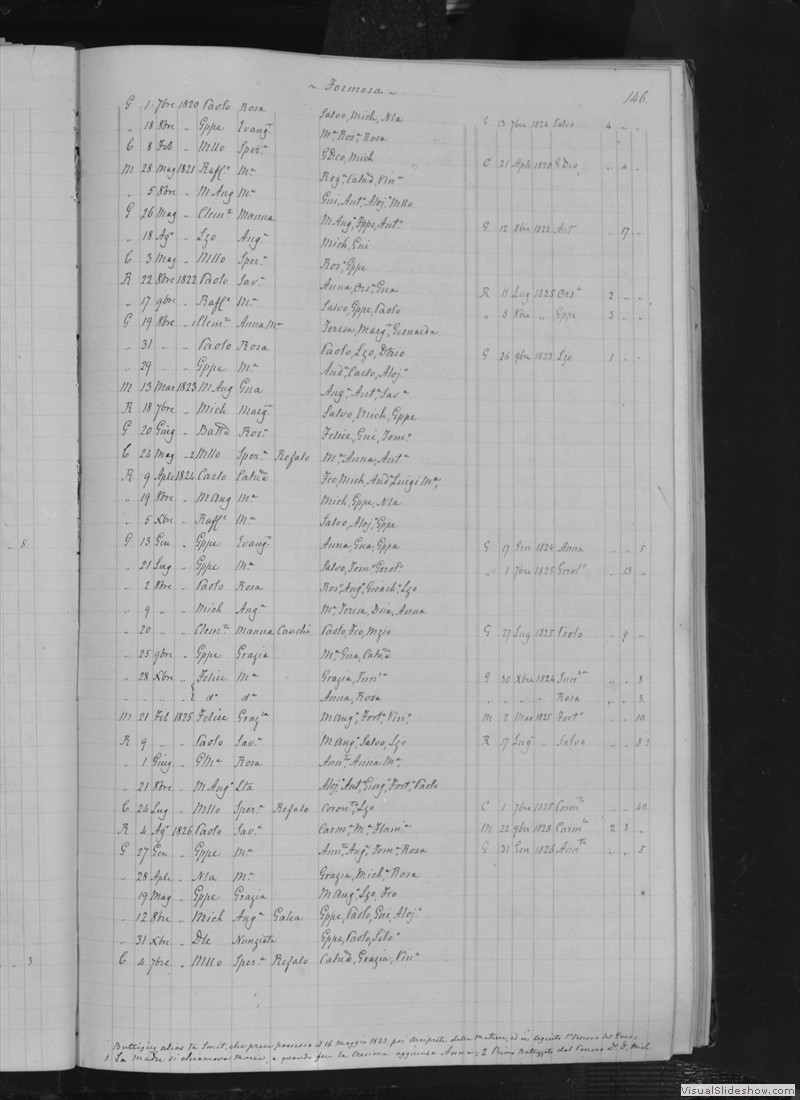 ~ Formosa ~
146.
G 1 7bre 1820 Paolo Rosa Salvo, Mich, Nla G 13 7bre 1824 Salvo 4 " "
" 18 8bre " Gppe Evang.ta Ma Rosa, Rosa
C 8 Feb " Mllo Sper.a GDeo, Mich C 21 Aple 1820 GDeo " 4 "
M 28 Mag 1821 Raffl.e Ma Rega, Catnd, Vin.a
" 5 8bre " M Ang Ma Gni, Anta, Aloja, Mllo
G 26 Mag " Clemte Manna M Anga, Fppo, Anta G 12 8bre 1822 Anta " 17 "
" 18 Ago " Lzo Anga Mich, Gni
C 3 Mag " Mllo Sper.a Rosa, Gppe
R 22 8bre 1822 Paolo Sava Anna, Orsa, Gna R 11 Lug 1825 Orsa 2 " "
" 17 9bre " Raffl.e Ma Salvo, Gppe, Paolo " 8 8bre " Gppe 3 " "
G 19 8bre " 1 Clemte Anna Ma Teresa, Marga, Gesuaida
" 31 " " Paolo Rosa Paolo, Lzo, Dtrio G 26 9bre 1823 Lzo 1 " "
" 29 " " Gppe Ma Anda, Carlo, Aloja
M 13 Mar 1823 M Ang Gna Anga, Anta, Sava
R 18 7bre " Mich Marga Salvo, Mich, Gppe
G 20 Giug " Batta Rosa Felice, Gni, Toma
C 24 Mag " 2 Mllo Sper.a Refalo Ma, Anna, Anta
R 9 Aple 1824 Carlo Catnd Fco, Mich, Anda, Luigi Ma,
" 19 8bre " M Ang Ma Mich, Gppe, Nla
" 5 Xbre " Raffl.e Ma Salvo, Aloja, Gppe
G 13 Gen " Gppe Evanga Anna, Gna, Gppa G 17 Gen 1824 Anna " " 5
" 21 Lug " Gppe Ma Salvo, Toma, Gerola " 1 7bre 1825 Gerola " 13 "
" 2 8bre " Paolo Rosa Rosa, Anga, Gioacha, Lzo
" 9 " " Mich Anga Ma, Teresa, Dria, Anna
" 20 " " Clemte Manna Cauchi Paolo, Fco, Mzio G 27 Lug 1825 Paolo " 9 "
" 25 9bre " Gppe Grazia Ma, Gna, Catnd
" 28 Xbre " Felice Ma Grazia, Innza G 30 Xbre 1824 Innza " " 3
" " " " da da Anna, Rosa " " " " Rosa " " 3
M 21 Feb 1825 Felice Grazia M Anga, Forta, Vina M 2 Mar 1825 Forta " " 10
R 9 " " Paolo Sava M Anga, Salvo, Lzo R 17 Lug " Salvo
" 1 Giug " GMa Rosa Annta, Anna Ma,
" 21 8bre " M Anga Lta Aloja, Anta, Giorga, Forta, Paolo
C 24 Lug " Mllo Sper.a Refalo Coronta, Lzo C 1 7bre 1825 Coronta " " 40
R 4 Ago 1826 Paolo Sava Carma, Ma, Flama M 22 9bre 1828 Carma 2 3 "
G 27 Gen " Gppe Ma Annta, Anga, Toma, Rosa G 31 Gen 1826 Annta " " 5
" 28 Aple " Nla Ma Grazia, Micha, Rosa
19 Mag " Gppe Grazia M Anga, Lzo, Fco
" 12 8bre " Mich Anga Galea Gppe, Paolo, Gni, Aloja
" 31 Xbre " Dle Nunziata Gppe, Paolo
C 4 7bre " Mllo Sper.a Refalo Catnd, Grazia, Vina
" 8.
" " 3
Buttigieg alias ta Smit, che prese possesso il 16 Maggio 1823, per Arciprete della Matrice, ed in seguito
1. La Madre si chiamava Maria, e quando fece la Cresima aggiunse Anna; 2 Primo Battezzato dal Parroco Dn. D. Mich.
VisualSlideshow.com